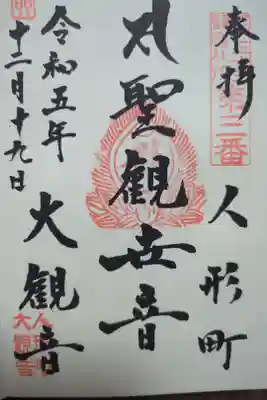 奉拝
第三番
人形町
聖観世音
大観音
令和五年
十二月十九日
人形町
大観音